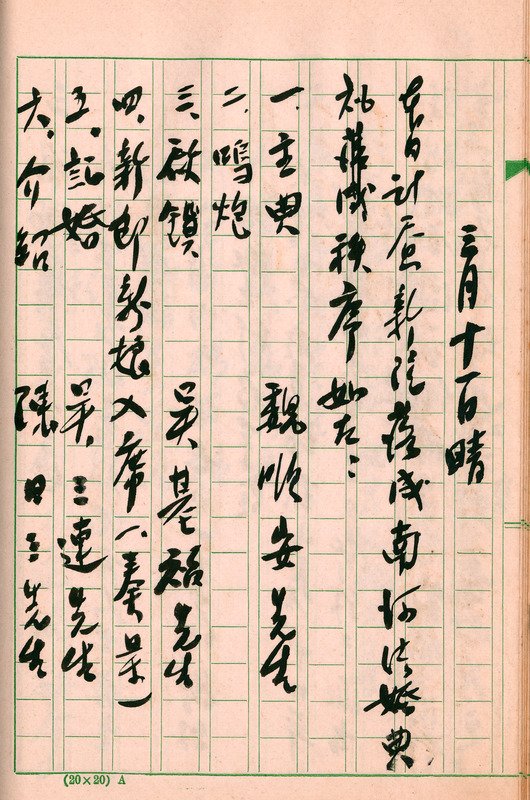 三月十一日晴
本日計蚕新院落成南河結婚典
礼落成秩序如左：
一、主典 魏順安先生
二、鳴炮
三、啟鎖 吳基福先生
四、新郎新娘入席（奏樂）
五、証婚 吳三連先生
六、介紹 陳日三先生
(20×20) A